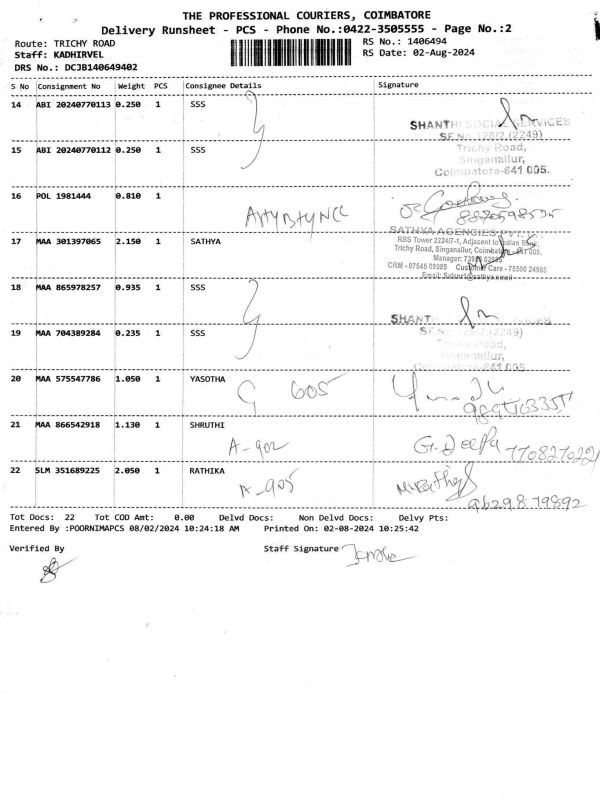 THE PROFESSIONAL COURIERS, COIMBATORE
Delivery Runsheet - PCS - Phone No.:0422-3505555 - Page No.:2
Route: TRICHY ROAD
Staff: KADHIRVEL
DRS No.: DCJB140649402
RS No.: 1406494
RS Date: 02-Aug-2024
S No Consignment No Weight PCS Consignee Details Signature
14 ABI 20240770113 0.250 1 SSS
SHANTHI SOCIAL SERVICES
15 ABI 20240770112 0.250 1 SSS
Trichy Road,
Singanallur,
Coimbatore-641 005.
16 POL 1981444 0.810 1
17 MAA 301397065 2.150 1 SATHYA
SATHYA AGENCIES PVT.
RBS Tower 2224/7-1, Adjacent to Indian Bank,
Trichy Road, Singanallur, Coimbatore - 641 005.
CRM - 87545 09985 Customer Care - 75500 24985
18 MAA 865978257 0.935 1 SSS
SHANT
19 MAA 704389284 0.235 1 SSS
Singanallur,
20 MAA 575547786 1.050 1 YASOTHA
G 605
21 MAA 866542918 1.130 1 SHRUTHI
A-902 G. Deepa 7708270221
22 SLM 351689225 2.050 1 RATHIKA
A-905
9629879892
Tot Docs: 22 Tot COD Amt: 0.00 Delvd Docs: Non Delvd Docs: Delvy Pts:
Entered By :POORNIMAPCS 08/02/2024 10:24:18 AM Printed On: 02-08-2024 10:25:42
Verified By Staff Signature